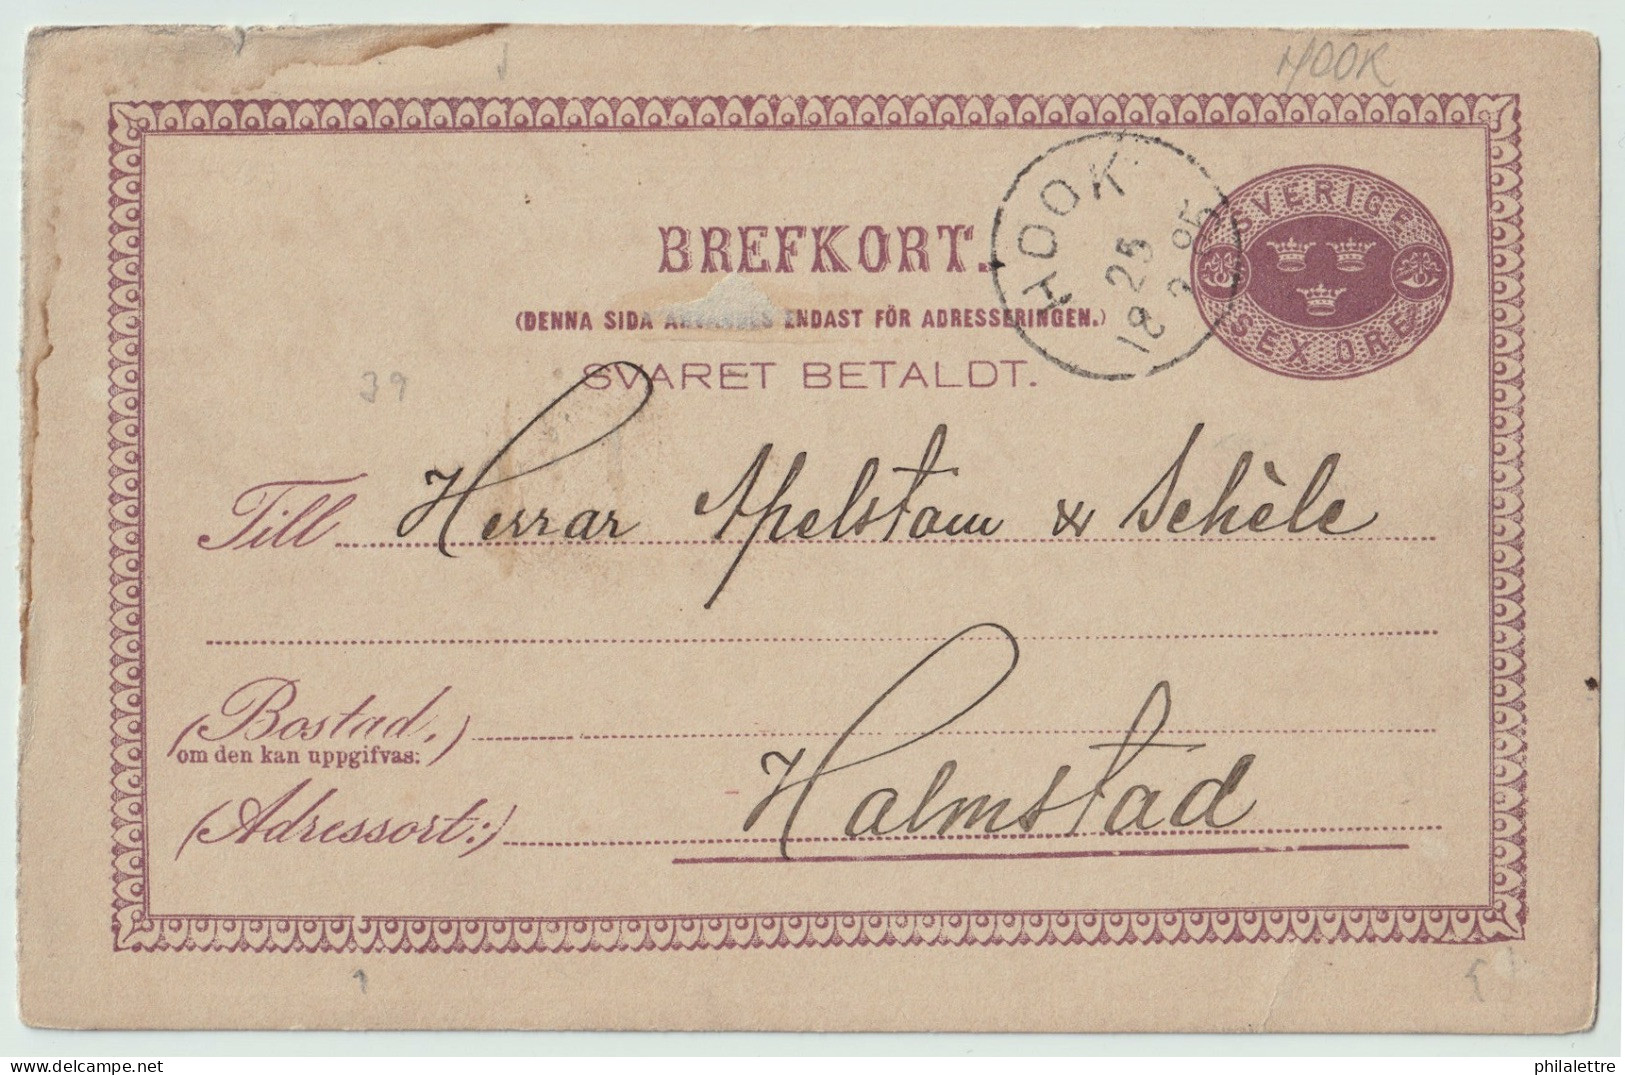 HOOK
HOOK
25
18 2 95
SVERIGE
SEX ÖRE
BREFKORT.
(DENNA SIDA ANVÄNDES ENDAST FÖR ADRESSERINGEN.)
SVARET BETALDT.
39
Till Herrar Apelstam & Schèle
(Bostad,)
om den kan uppgifvas:
(Adressort:) Halmstad
philalettre